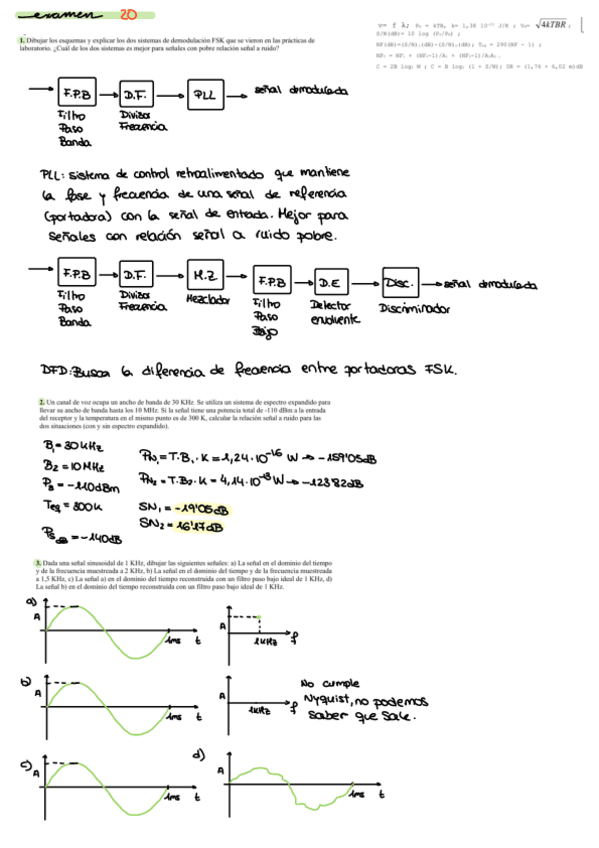 examen 20
1. Dibujar los esquemas y explicar los dos sistemas de demodulación FSK que se vieron en las prácticas de
laboratorio. ¿Cuál de los dos sistemas es mejor para señales con pobre relación señal a ruido?
C = 2B log₂ M ; C = B log₂ (1 + S/N); DR = (1,76 + 6,02 m)dB
F.P.B D.F. PLL señal demodulada
Filtro Divisor
Paso Frecuencia
Banda
PLL: Sistema de control retroalimentado que mantiene
la fase y frecuencia de una señal de referencia
(portadora) con la señal de entrada. Mejor para
señales con relación señal a ruido pobre.
F.P.B D.F. M.Z F.P.B D.E Disc. señal demodulada
Filtro Divisor Mezclador Filtro Detector Discriminador
Paso Frecuencia Paso envolvente
Banda Bajo
DFD: Busca la diferencia de frecuencia entre portadoras FSK.
2. Un canal de voz ocupa un ancho de banda de 30 KHz. Se utiliza un sistema de espectro expandido para
llevar su ancho de banda hasta los 10 MHz. Si la señal tiene una potencia total de -110 dBm a la entrada
del receptor y la temperatura en el mismo punto es de 300 K, calcular la relación señal a ruido para las
dos situaciones (con y sin espectro expandido).
B₁ = 30 KHz
B₂ = 10 MHz
Ps = -110dBm
Teq = 300K
= -140dB
PN₁ = T.B₁.K = 1,24.10⁻¹⁶ W → -159'05dB
PN₂ = T.B₂.K = 4,14.10⁻¹³ W → -123'82dB
SN₁ = -19'05dB
SN₂ = 16'17dB
3. Dada una señal sinusoidal de 1 KHz, dibujar las siguientes señales: a) La señal en el dominio del tiempo
y de la frecuencia muestreada a 2 KHz, b) La señal en el dominio del tiempo y de la frecuencia muestreada
a 1,5 KHz, c) La señal a) en el dominio del tiempo reconstruida con un filtro paso bajo ideal de 1 KHz, d)
La señal b) en el dominio del tiempo reconstruida con un filtro paso bajo ideal de 1 KHz.
a) A 1ms t A 1KHz f
b) A 1ms t A 1KHz f
No cumple
Nyquist, no podemos
saber que sale.
c) A 1ms t d) A 1ms t